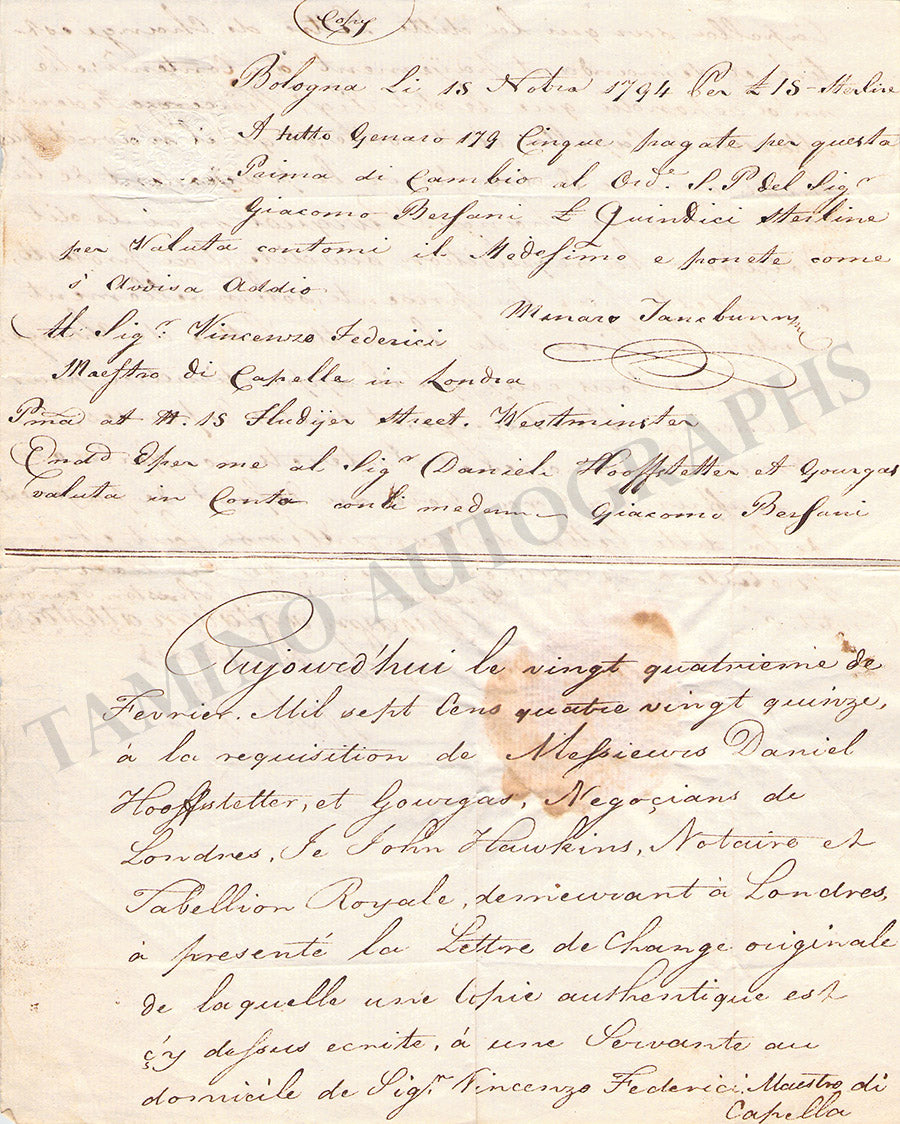 Copy
Bologna Li 15 Nobra 1794 Per £ 15 - Sterline
A tutto Genaro 179 Cinque pagate per questa
Prima di Cambio al Ord.e S. P del Sig.r
Giacomo Bersani £ Quindici Sterline
per Valuta contomi il Medesimo e ponete come
s' Avvisa Addio
Al Sig.r Vincenzo Federici
Maestro di Capella in Londra
Pma at N. 15 Fludÿer Street. Westminster
per me al Sig.r Daniel Hooffstetter et Gourgas
valuta in Conto Giacomo Bersani
Aujourd'hui le vingt quatrieme de
Fevrier. Mil sept Cens quatre vingt quinze,
à la requisition de Messieurs Daniel
Hooffstetter, et Gourgas, Negoçians de
Londres, Je John Hawkins, Notaire et
Tabellion Royale, demeurant à Londres,
à presenté la Lettre de Change originale
de laquelle une Copie authentique est
çy dessus ecrite, à une Servante au
domicile de Sig.r Vincenzo Federici. Maestro di
Capella
TAMINO AUTOGRAPHS